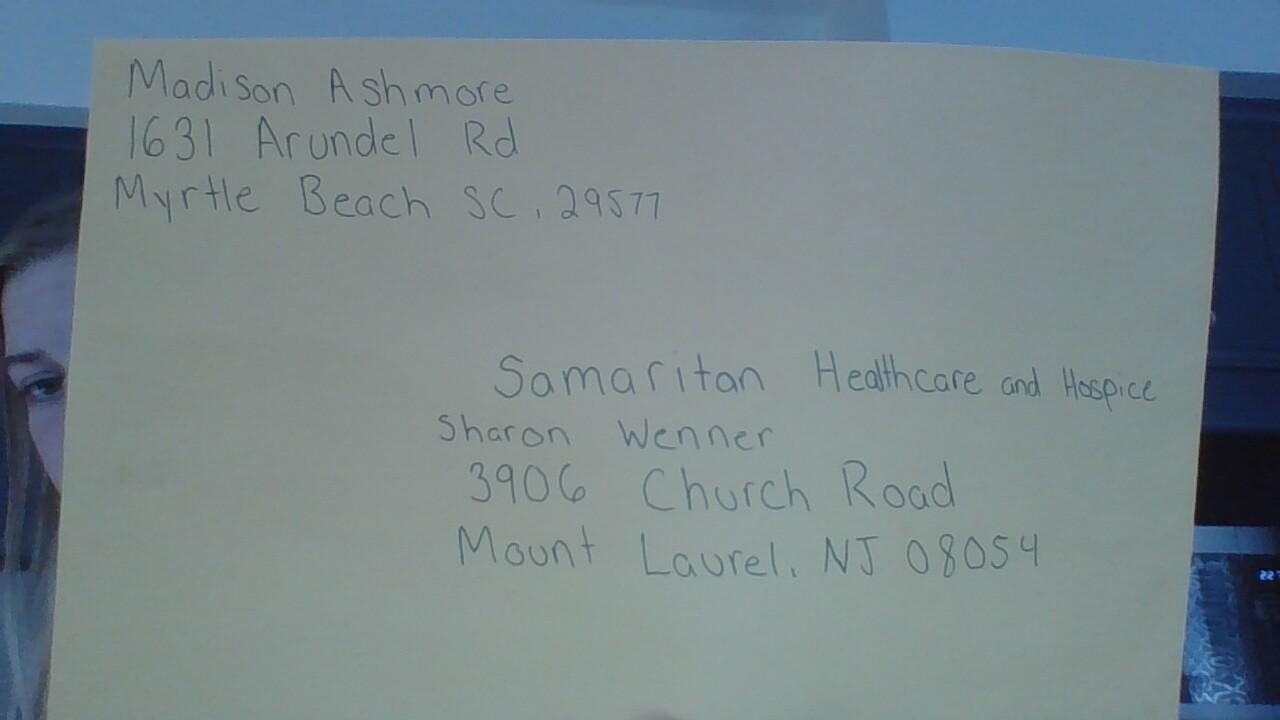 Madison Ashmore
1631 Arundel Rd
Myrtle Beach SC, 29577
Samaritan Healthcare and Hospice
Sharon Wenner
3906 Church Road
Mount Laurel, NJ 08054